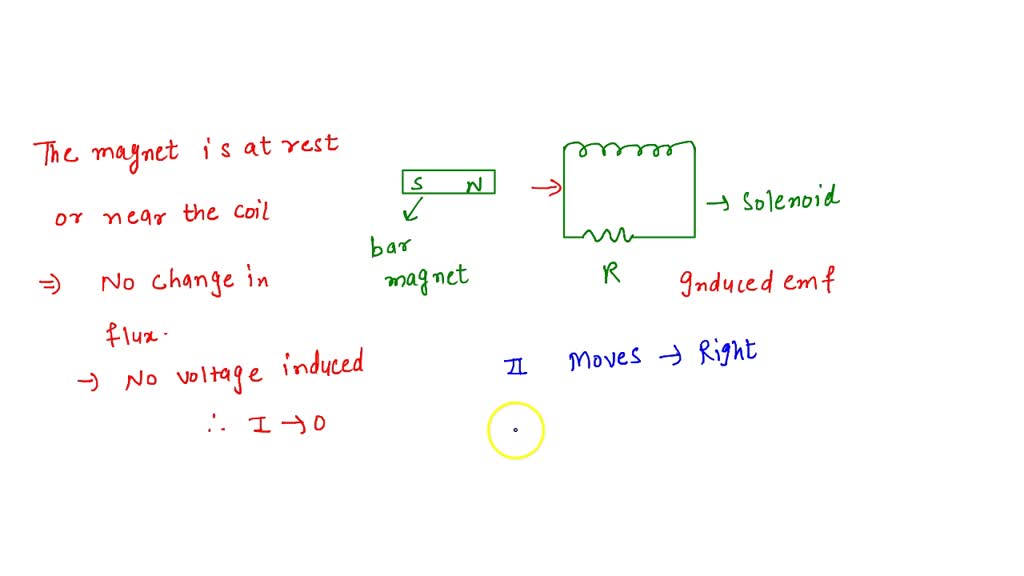 The magnet is at rest
or near the coil
⇒ No change in
flux.
→ No voltage induced
∴ I → 0
S N
bar
magnet
→ solenoid
R
Induced emf
II Moves → Right